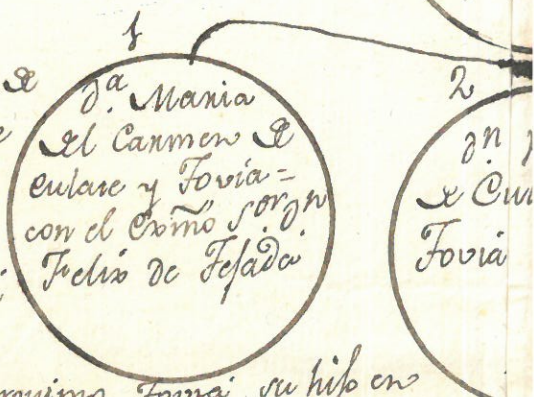 1
dª. Maria
del Carmen de
eulate y Tovia =
con el Exmõ sor dn
Felix de Tejada
2
dn
de Eu
Tovia
de
su hijo en